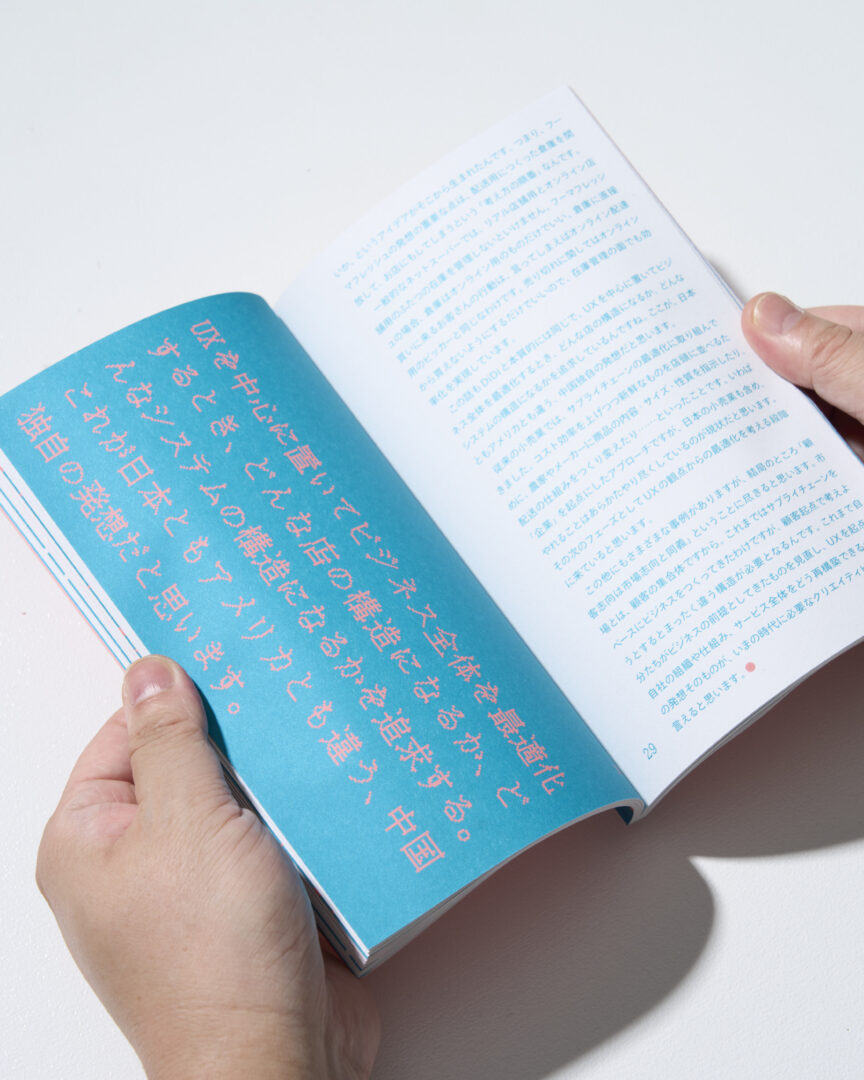 UXを中心に置いてビジネス全体を最適化
するとき、どんな店の構造になるか、ど
んなシステムの構造になるかを追求する。
これが日本ともアメリカとも違う、中国
独自の発想だと思います。
いか、というアイデアがそこから生まれたんです。つまり、フー
マフレッシュの発想の重要な点は、配送用につくった倉庫を開
放して、お店にもしてしまうという「考え方の順番」なんです。
一般的なネットスーパーでは、リアル店舗用とオンライン店
舗用のふたつの在庫を管理しないといけません。フーマフレッシ
ュの場合、倉庫はオンライン用のものだけでいい。倉庫に直接
買いに来るお客さんの行動は、言ってしまえばオンライン配達
用のピッカーと同じなわけです。売り切れに関してはオンライン
から買えないようにするだけでいいので、在庫管理の面でも効
率化を実現しています。
この話もDiDiと本質的には同じで、UXを中心に置いてビジ
ネス全体を最適化するとき、どんな店の構造になるか、どんな
システムの構造になるかを追求しているんですね。ここが、日本
ともアメリカとも違う、中国独自の発想だと思います。
従来の小売業では、サプライチェーンの最適化に取り組んで
きました。コスト効率を上げつつ新鮮なものを店頭に並べるた
めに、農家やメーカーに商品の内容・サイズ・性質を指示したり、
配送の仕組みをつくり変えたり……といったことです。いわば
「企業」を起点にしたアプローチですが、日本の小売業も含め、
やれることはあらかたやり尽くしているのが現状だと思います。
その次のフェーズとしてUXの観点からの最適化を考える段階
に来ていると思います。
この他にもさまざまな事例がありますが、結局のところ「顧
客志向は市場志向と同義」ということに尽きると思います。市
場とは、顧客の集合体ですから。これまではサプライチェーンを
ベースにビジネスをつくってきたわけですが、顧客起点で考えよ
うとするとまったく違う構造が必要となるんです。これまで自
分たちがビジネスの前提としてきたものを見直し、UXを起点に
自社の組織や仕組み、サービス全体をどう再構築できる
の発想そのものが、いまの時代に必要なクリエイティ
言えると思います。
29